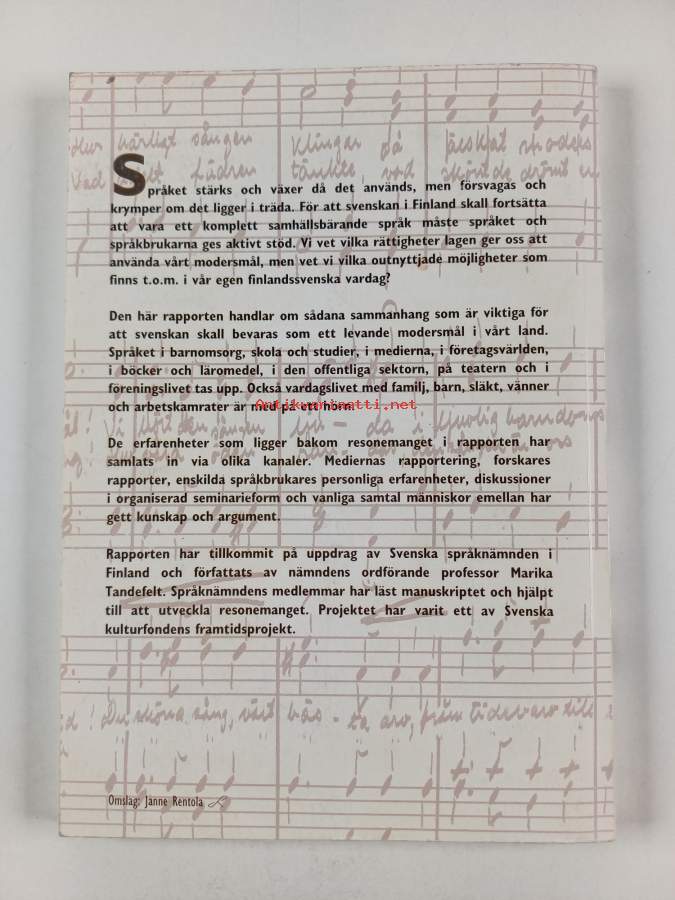 Språket stärks och växer då det används, men försvagas och
krymper om det ligger i träda. För att svenskan i Finland skall fortsätta
att vara ett komplett samhällsbärande språk måste språket och
språkbrukarna ges aktivt stöd. Vi vet vilka rättigheter lagen ger oss att
använda vårt modersmål, men vet vi vilka outnyttjade möjligheter som
finns t.o.m. i vår egen finlandssvenska vardag?
Den här rapporten handlar om sådana sammanhang som är viktiga för
att svenskan skall bevaras som ett levande modersmål i vårt land.
Språket i barnomsorg, skola och studier, i medierna, i företagsvärlden,
i böcker och läromedel, i den offentliga sektorn, på teatern och i
föreningslivet tas upp. Också vardagslivet med familj, barn, släkt, vänner
och arbetskamrater är med på ett hörn.
Antikvariaatti.net
De erfarenheter som ligger bakom resonemanget i rapporten har
samlats in via olika kanaler. Mediernas rapportering, forskares
rapporter, enskilda språkbrukares personliga erfarenheter, diskussioner
i organiserad seminarieform och vanliga samtal människor emellan har
gett kunskap och argument.
Rapporten har tillkommit på uppdrag av Svenska språknämnden i
Finland och författats av nämndens ordförande professor Marika
Tandefelt. Språknämndens medlemmar har läst manuskriptet och hjälpt
till att utveckla resonemanget. Projektet har varit ett av Svenska
kulturfondens framtidsprojekt.
Du sköna sång, vårt bäs - ta arv, från tidevarv till
Omslag: Janne Rentola